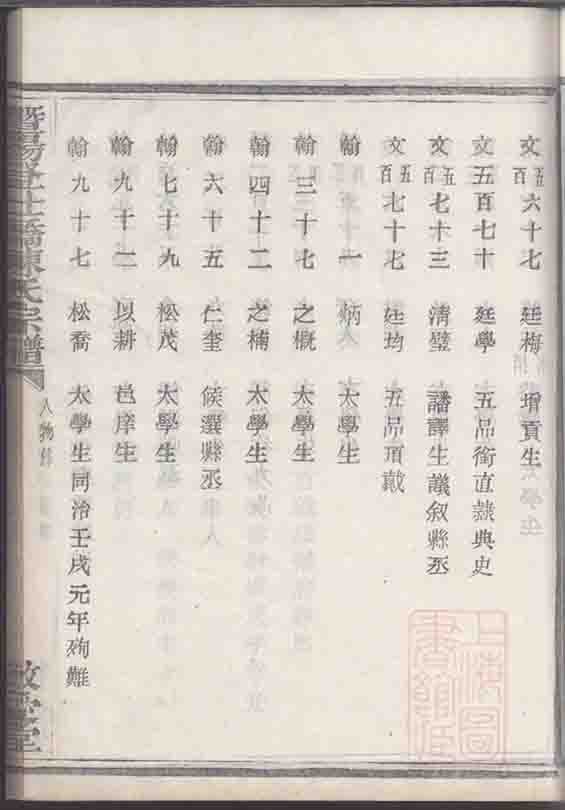 文五百六十七 廷梅 增貢生
文五百七十 廷學 五品銜直隷典史
文五百七十三 清璧 譒譯生議叙縣丞
文五百七十七 廷均 五品頂戴
翰一 炳 大學生
翰三十七 之概 太學生
翰四十二 之楠 太學生
翰六十五 仁奎 候選縣丞
翰七十九 松茂 太學生
翰九十二 以耕 邑庠生
翰九十七 松喬 太學生同治壬戌元年殉難
陳氏宗譜
人物
堂
上海圖書館臧